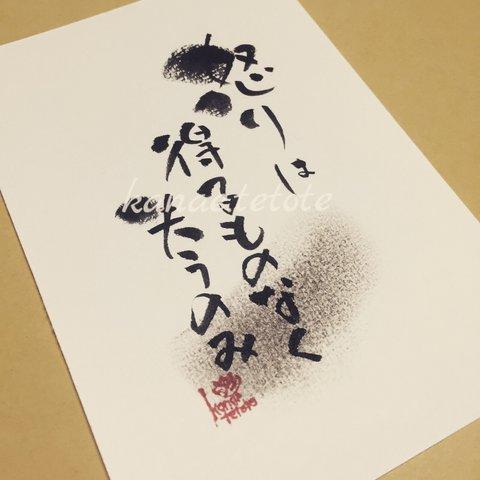 怒りは
得るものなく
失うのみ
kanae tetote
kanae
tetote